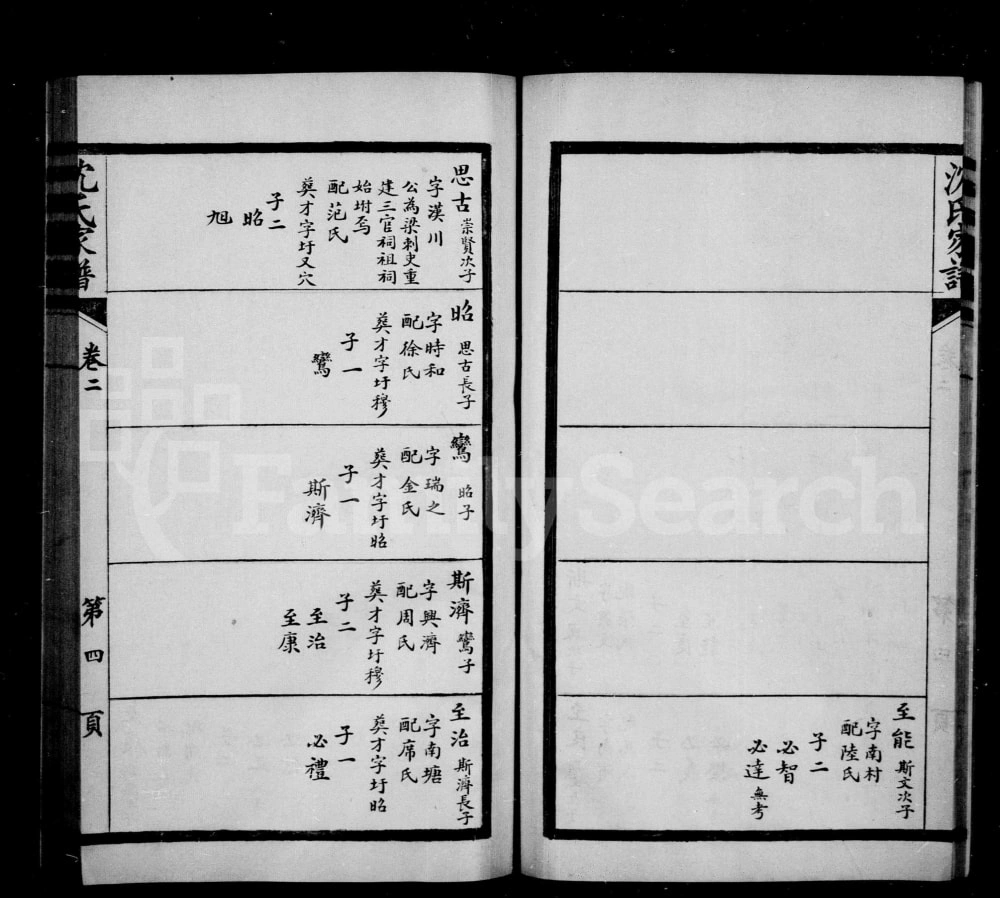 沈氏家譜
至能 斯文次子
字南村
配陸氏
子二
必智
必達 無考
思古 崇賢次子
字漢川
公為梁刺史重
建三官祠祖祠
始坿焉
配范氏
葬才字圩又穴
子二
昭
旭
昭 思古長子
字時和
配徐氏
葬才字圩穆
子一
鸞
鸞 昭子
字瑞之
配金氏
葬才字圩昭
子一
斯濟
斯濟 鸞子
字興濟
配周氏
葬才字圩穆
子二
至治
至康
至治 斯濟長子
字南塘
配席氏
葬才字圩昭
子一
必禮
沈氏家譜
卷二
第四頁
FamilySearch